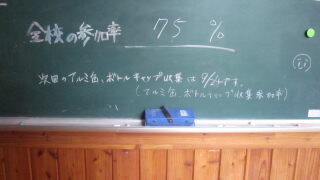 全校の参加率 75 %
次回のアルミ缶、ボトルキャップ収集は 9/24です。
(アルミ缶、ボトルキャップ収集参加率)